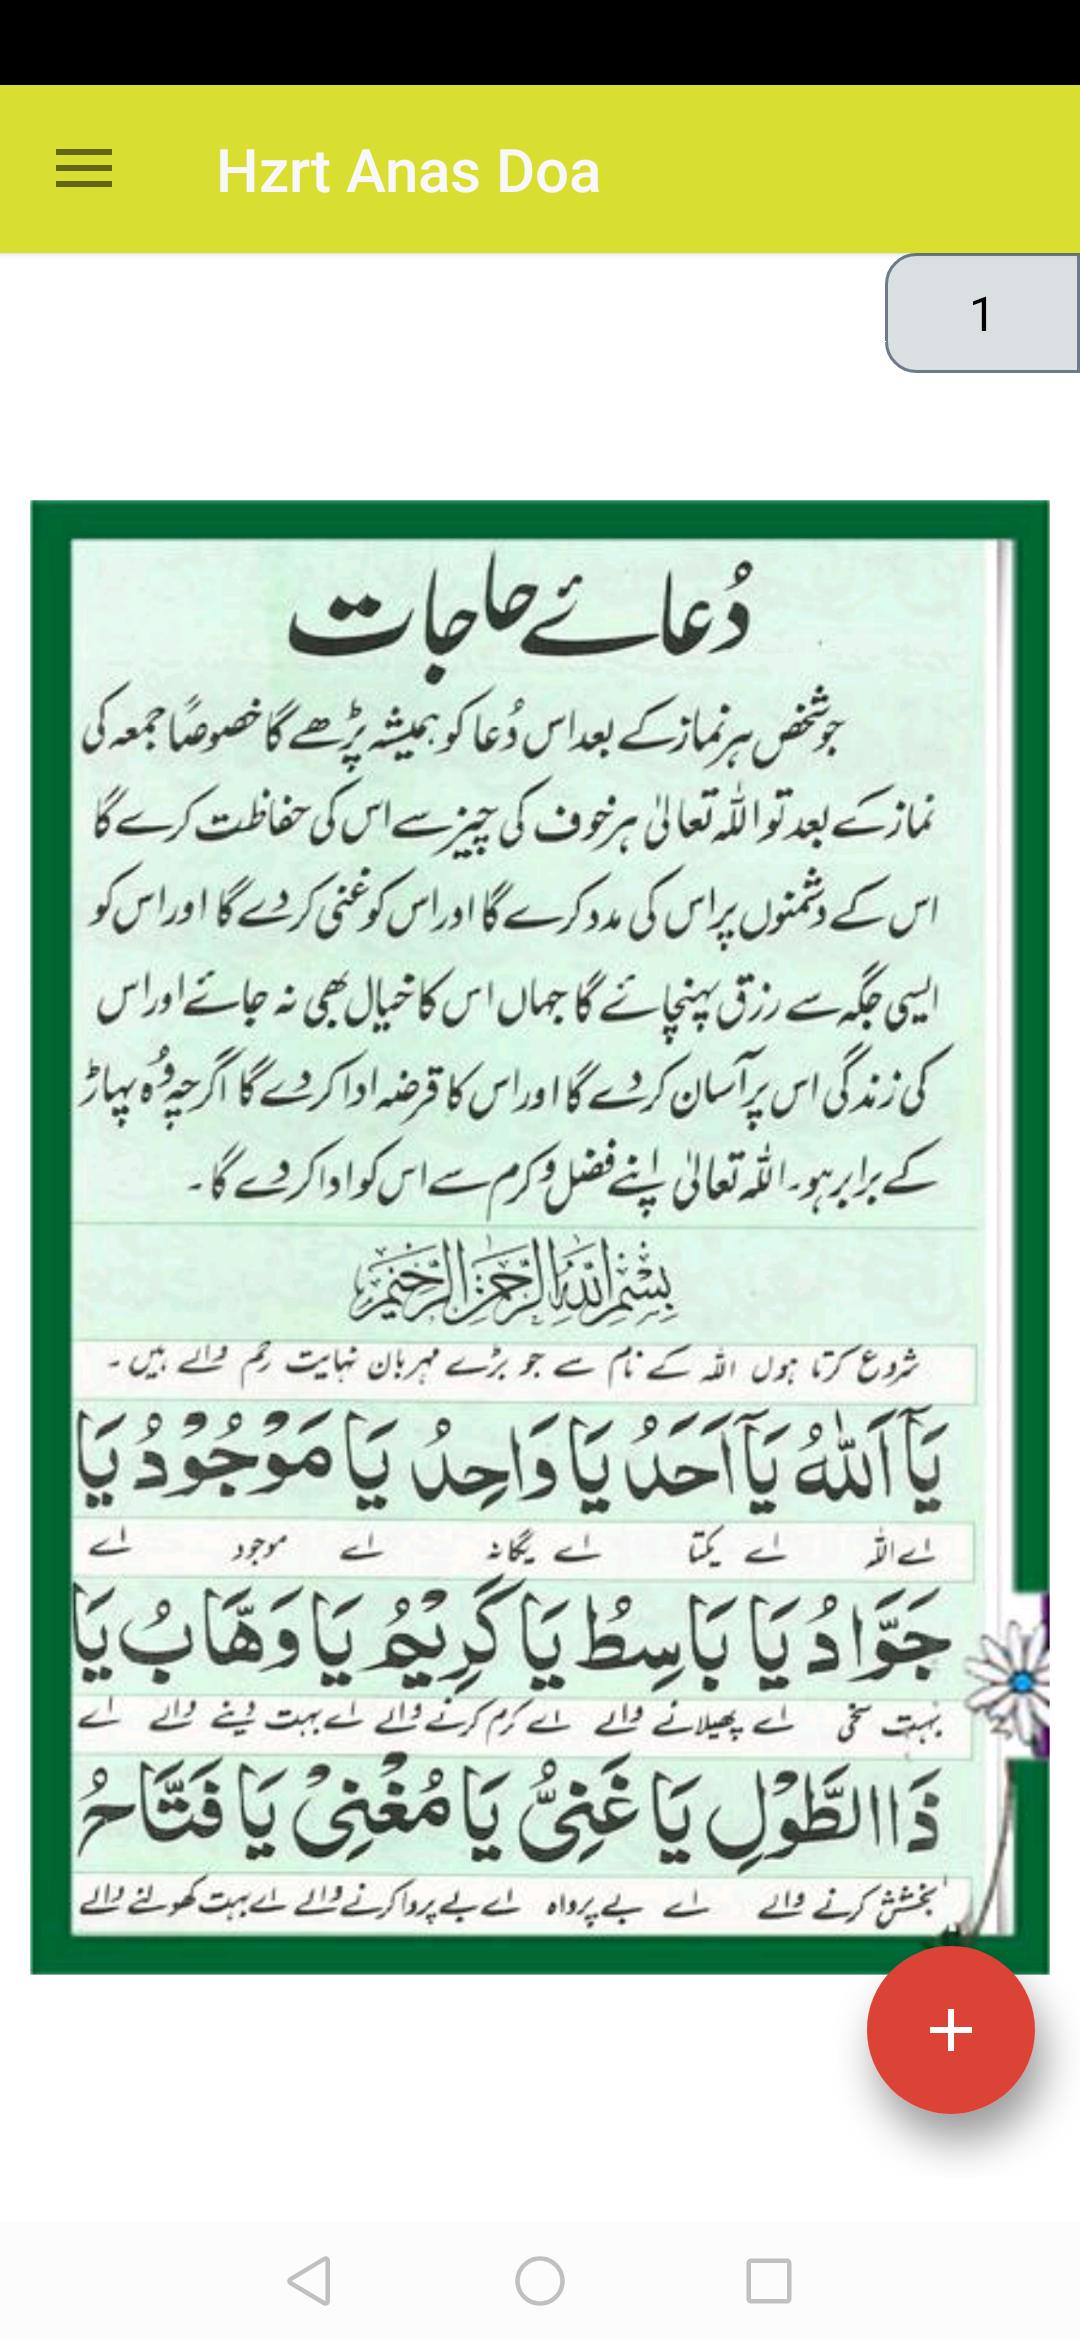 Hzrt Anas Doa
1
دُعائے حاجات
جو شخص ہر نماز کے بعد اس دُعا کو ہمیشہ پڑھے گا خصوصًا جمعہ کی
نماز کے بعد تو اللہ تعالیٰ ہر خوف کی چیز سے اس کی حفاظت کرے گا
اس کے دشمنوں پر اس کی مدد کرے گا اور اس کو غنی کر دے گا اور اس کو
ایسی جگہ سے رزق پہنچائے گا جہاں اس کا خیال بھی نہ جائے اور اس
کی زندگی اس پر آسان کر دے گا اور اس کا قرضہ ادا کر دے گا اگرچہ وُہ پہاڑ
کے برابر ہو۔ اللہ تعالیٰ اپنے فضل و کرم سے اس کو ادا کر دے گا۔
بِسْمِ اللّٰهِ الرَّحْمٰنِ الرَّحِيْمِ
شروع کرتا ہوں اللہ کے نام سے جو بڑے مہربان نہایت رحم والے ہیں۔
يَآ اَللّٰهُ يَآ اَحَدُ يَا وَاحِدُ يَا مَوْجُوْدُ يَا
اے اللہ اے یکتا اے یگانہ اے موجود اے
جَوَّادُ يَا بَاسِطُ يَا كَرِيْمُ يَا وَهَّابُ يَا
بہت سخی اے پھیلانے والے اے کرم کرنے والے اے بہت دینے والے اے
ذَا الطَّوْلِ يَا غَنِيُّ يَا مُغْنِيْ يَا فَتَّاحُ
بخشش کرنے والے اے بے پرواہ اے بے پروا کرنے والے اے بہت کھولنے والے